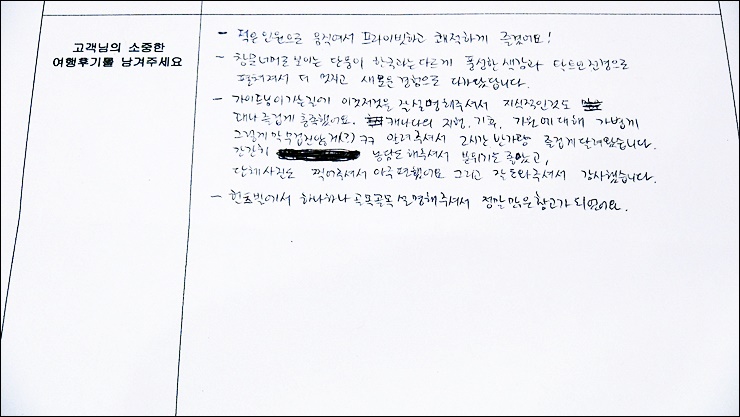 고객님의 소중한
여행후기를 남겨주세요
- 적은 인원으로 움직여서 프라이빗하고 쾌적하게 즐겼어요!
- 창문너머로 보이는 단풍이 한국과는 다르게 풍성한 색감과 탁트인 전경으로
펼쳐져서 더 멋지고 새로운 경험으로 다가왔답니다.
- 가이드님이 가는길에 이것저것을 잘 설명해주셔서 지식적인것도
대나 즐겁게 충족했어요. 캐나다의 지형, 기후, 가원에 대해 가볍게
그렇게 막 무겁진않게(?) ㅋㅋ 알려주셔서 2시간 반가량 즐겁게 달려왔습니다.
간간히 농담도 해주셔서 분위기도 좋았고,
단체사진도 찍어주셔서 아주 편했어요 그리고 각도와주셔서 감사했습니다.
- 헌츠빌에서 하나하나 골목골목 설명해주셔서 정말 많은 참고가 되었어요.